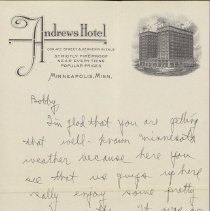 Andrews Hotel
COR. 4TH STREET & HENNEPIN AVENUE
STRICTLY FIREPROOF
NEAR EVERYTHING
POPULAR PRICES
MINNEAPOLIS, MINN.
Bobby,
I'm glad that you are getting
that well-known Minnesota
weather because here you
see that we guys up here
really enjoy some pretty
it was